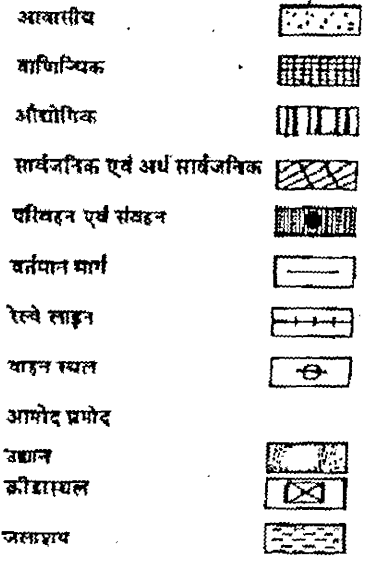 आवासीय
वाणिज्यिक
औद्योगिक
सार्वजनिक एवं अर्ध सार्वजनिक
परिवहन एवं संवहन
वर्तमान मार्ग
रेल्वे लाइन
वाहन स्थल
आमोद प्रमोद
उद्यान
क्रीडास्थल
जलाशय